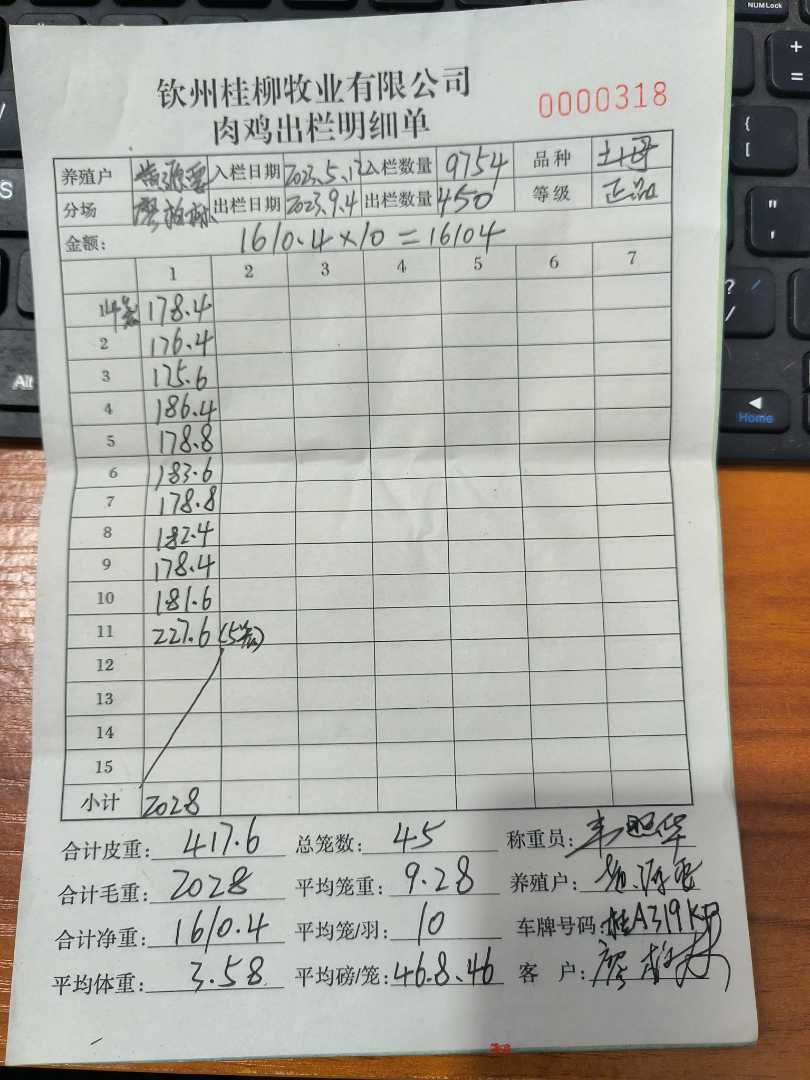 钦州桂柳牧业有限公司
肉鸡出栏明细单
0000318
养殖户 入栏日期 2023.5.12 入栏数量 9754 品种 土母
分场 出栏日期 2023.9.4 出栏数量 450 等级 正品
金额: 1610.4×10=16104
1 2 3 4 5 6 7
1 4笼 178.4
2 176.4
3 175.6
4 186.4
5 178.8
6 183.6
7 178.8
8 182.4
9 178.4
10 181.6
11 227.6 (5笼)
12
13
14
15
小计 2028
合计皮重: 417.6 总笼数: 45 称重员:
合计毛重: 2028 平均笼重: 9.28 养殖户:
合计净重: 1610.4 平均笼/羽: 10 车牌号码: 桂A319KB
平均体重: 3.58 平均磅/笼: 46.8.46 客 户: